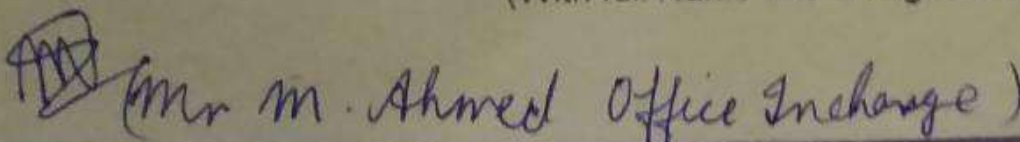 (Mr M. Ahmed Office Incharge)